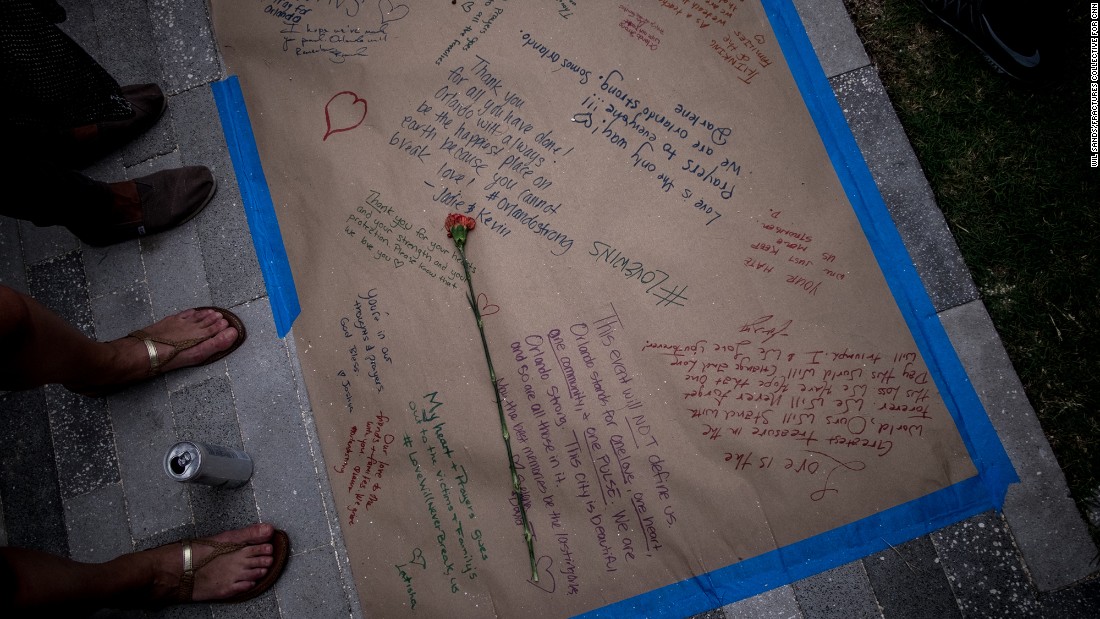 Orlando
I hope we've made
you proud. Orlando will
Thank you
for all you have done!
Orlando will always
be the happiest place on
earth because you cannot
break love! #Orlandostrong
- Jodie & Kevin
Love is the only way! ♡
Prayers to everyone!!!
We are orlando strong. Somos orlando.
Darlene
THINKING
OF THE
FAMILIES
YOUR HATE
WILL JUST KEEP
US MORE
STRONGER
P.
#LOVEWINS
Thank you for your
and your strength and your
protection. Please know that
we love you ♡
You're in our
thoughts & prayers
God Bless
♡ Jessica
Our love to the
My heart + Prayers goes
out to the victims + Family's
#LoveWillNeverBreak, us
♡ Latisha
This event will NOT define us.
Orlando stands for one love, one heart,
one community, & one PULSE. We are
Orlando Strong. This city is beautiful
and so are all those in it.
May the best memories be the lasting ones.
Love is the
Greatest Treasure in the
World, Ours Will Stand with
forever. We Will Never forget
this loss. We Have Hope that one
Day this World will Change and Love
Will triumph. I & We Love you Forever!
WIL SANDS/FRACTURES COLLECTIVE FOR CNN